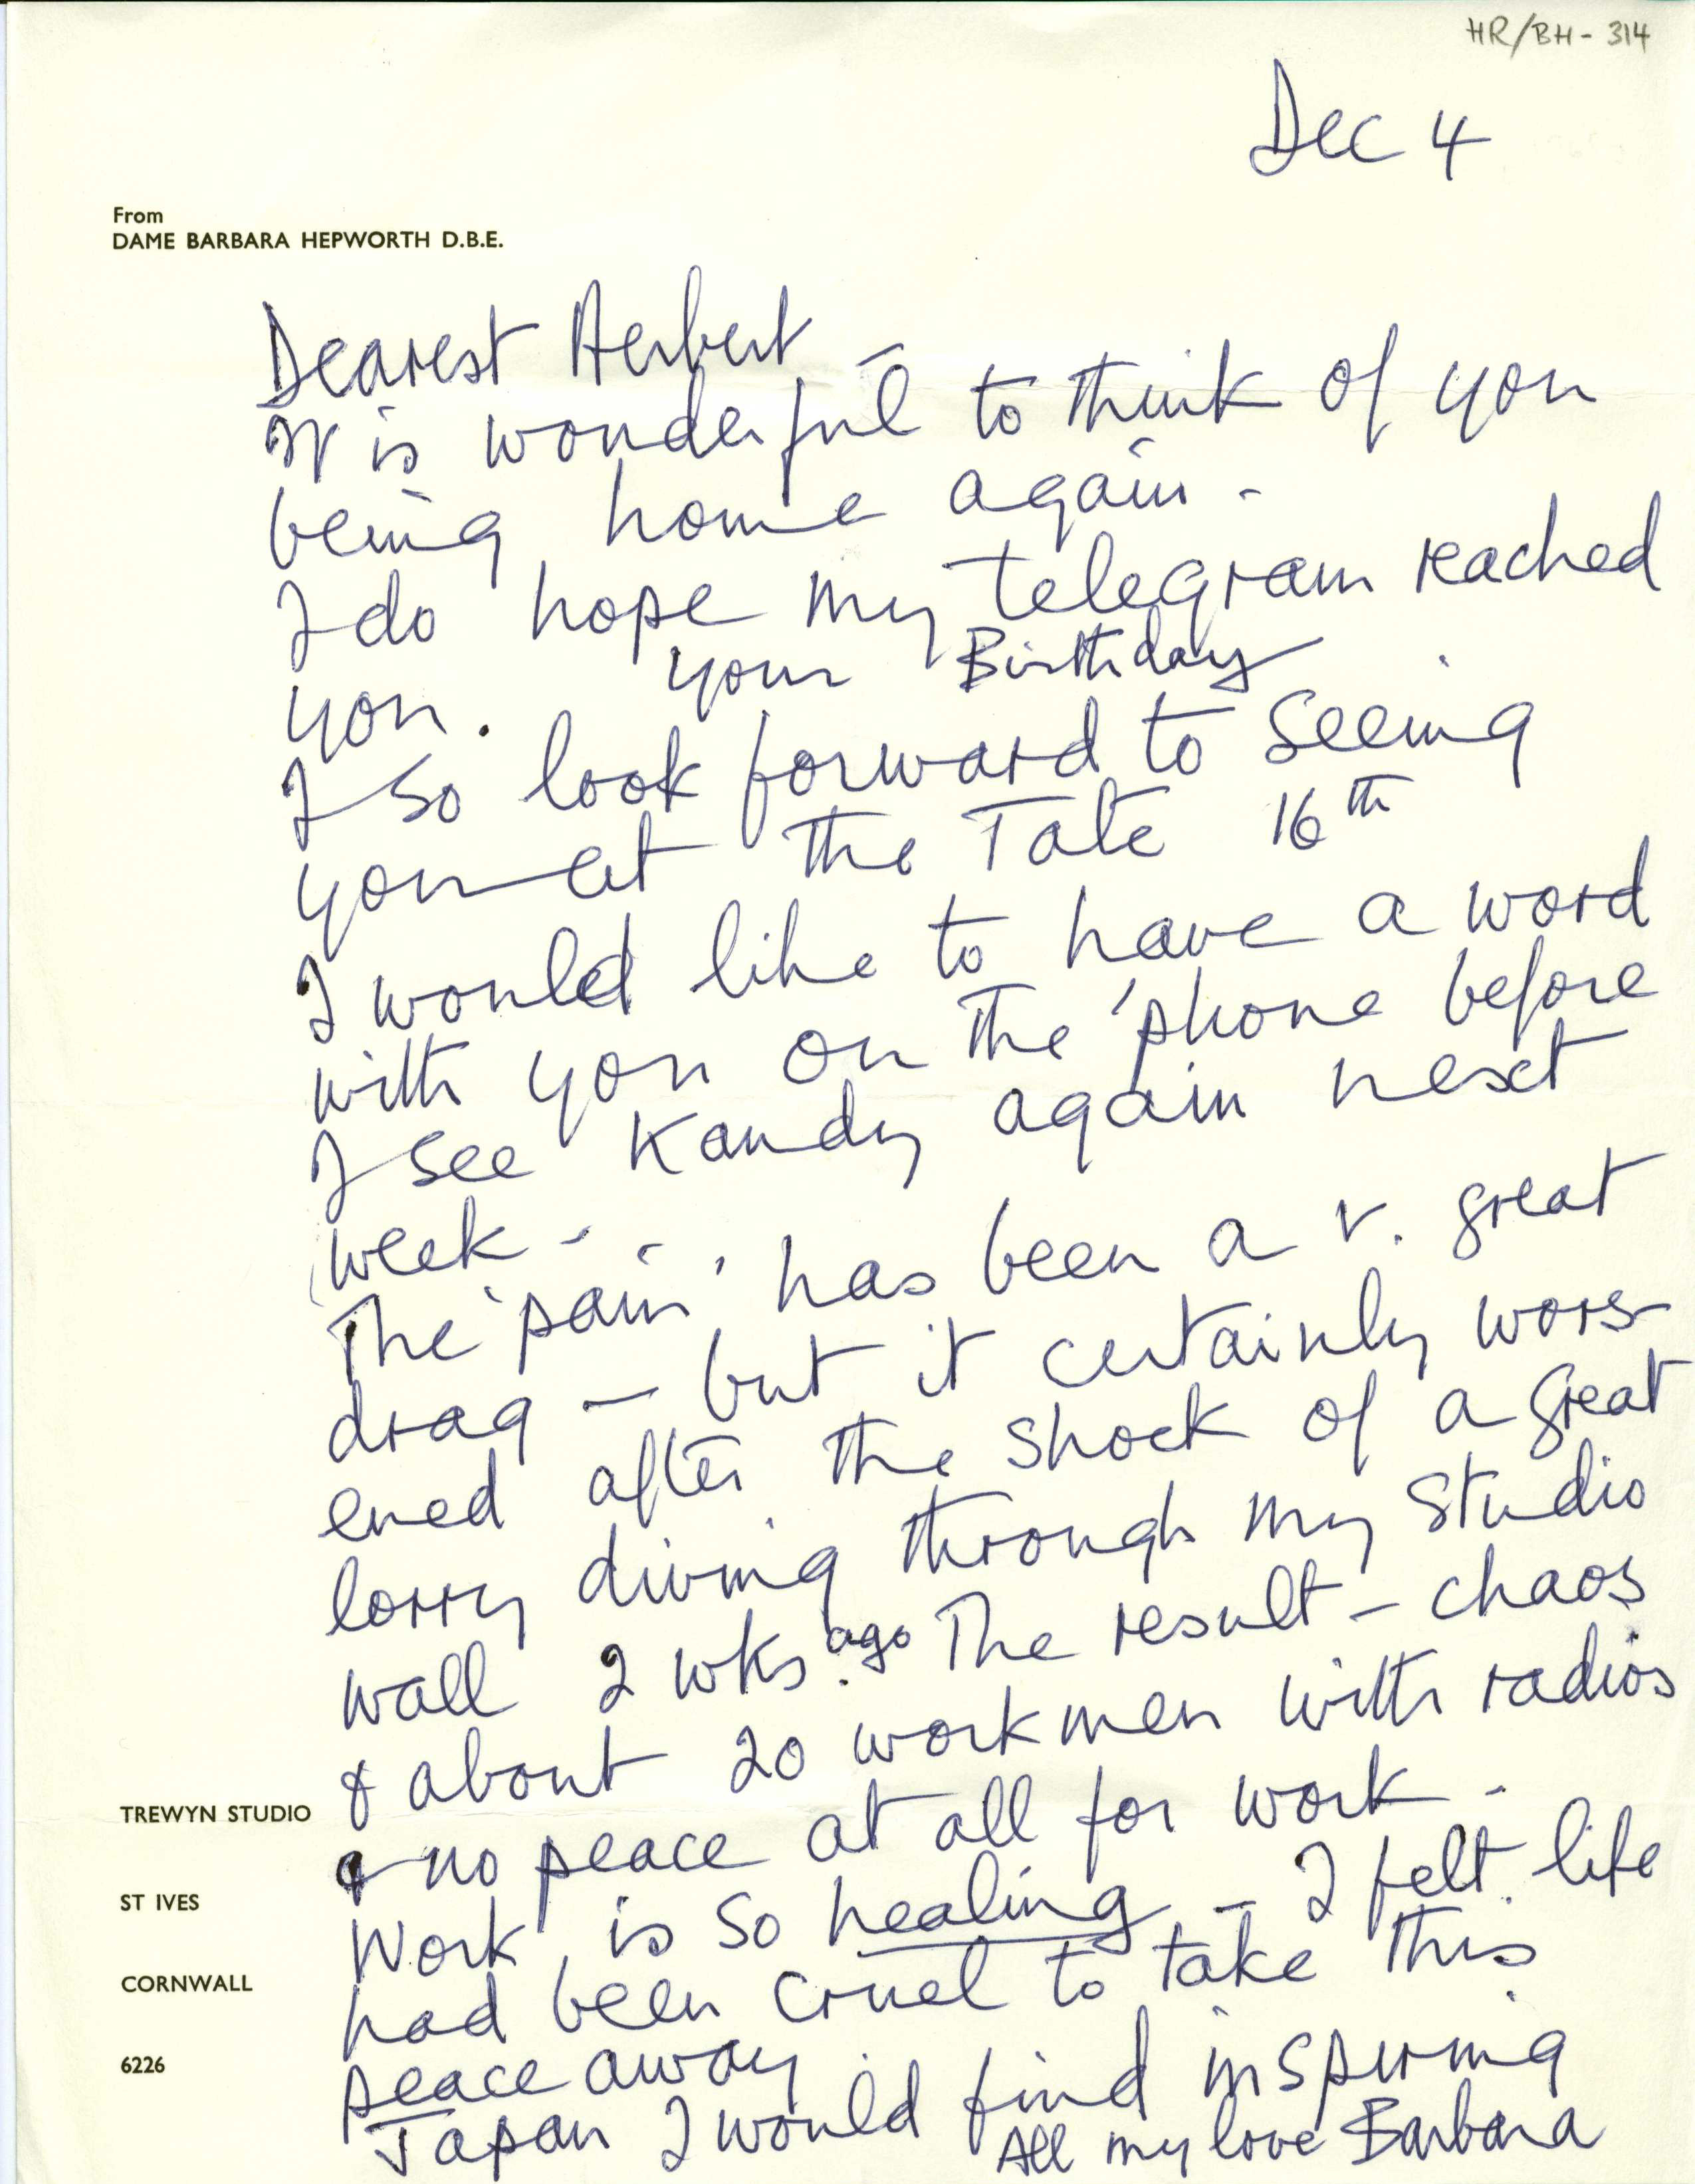 HR/BH - 314
Dec 4
From
DAME BARBARA HEPWORTH D.B.E.
Dearest Herbert –
It is wonderful to think of you
being home again -
I do hope my telegram reached
you. Your Birthday
I so look forward to seeing
you at the Tate 16th
I would like to have a word
with you on the 'phone before
I see Kandy again next
week -
The 'pain' has been a v. great
drag – but it certainly wors-
ened after the shock of a great
lorry diving through my studio
wall 2 wks ago. The result – chaos
& about 20 workmen with radios
& no peace at all for work -
Work is so healing – I felt life
had been cruel to take this
peace away.
Japan I would find inspiring
All my love Barbara
TREWYN STUDIO
ST IVES
CORNWALL
6226